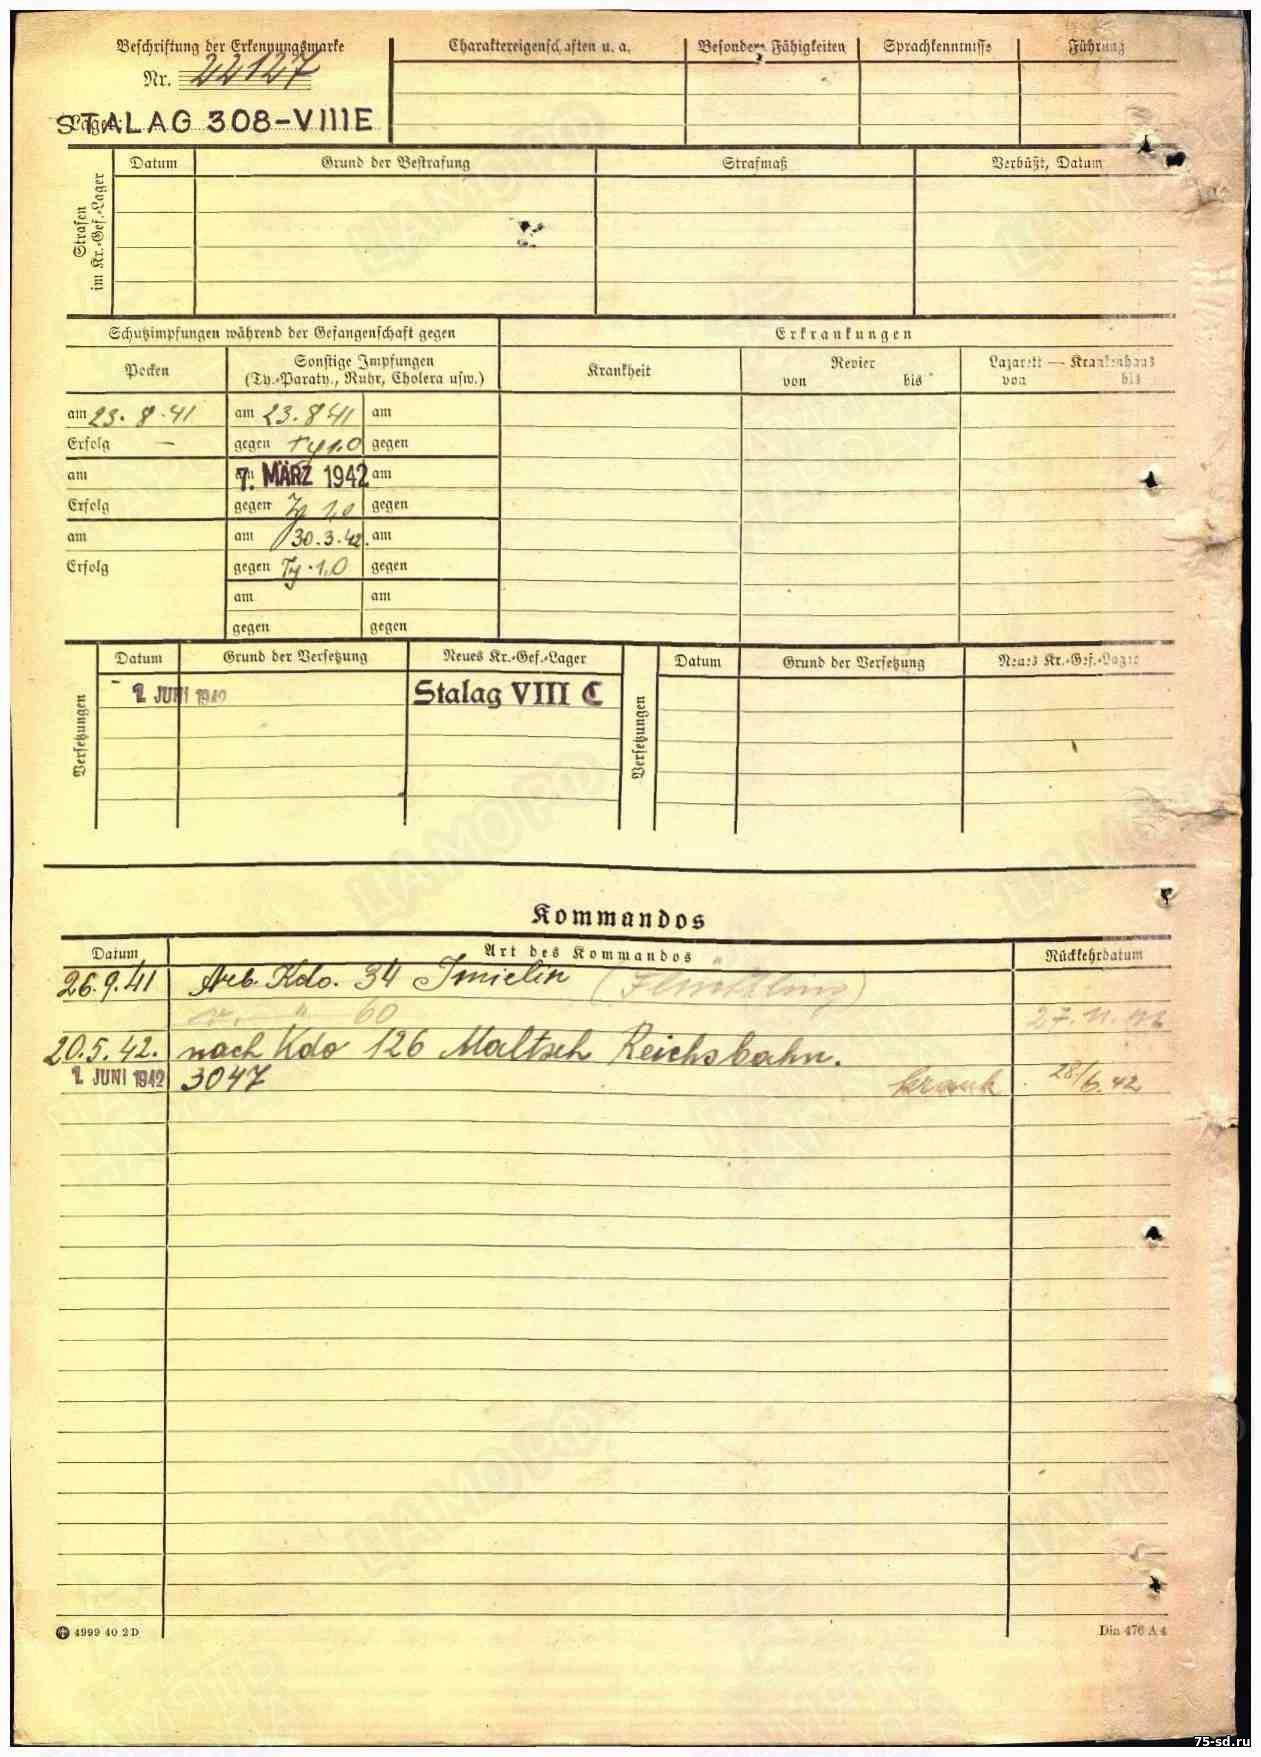 Beschriftung der Erkennungsmarke
Nr. 22127
Lager:
STALAG 308-VIIIE
Charaktereigenschaften u. a.
Besondere Fähigkeiten
Sprachkenntnisse
Führung
Strafen im Kr.-Gef.-Lager
Datum
Grund der Bestrafung
Strafmaß
Verbüßt, Datum
Schutzimpfungen während der Gefangenschaft gegen
Erkrankungen
Pocken
Sonstige Impfungen
(Ty.-Paraty., Ruhr, Cholera usw.)
Krankheit
Revier
von bis
Lazarett — Krankenhaus
von bis
am 23.8.41 am 23.8.41 am
Erfolg — gegen Ty 1.0 gegen
am am 7. MÄRZ 1942 am
Erfolg gegen Ty 1.0 gegen
am am 30.3.42. am
Erfolg gegen Ty. 1,0 gegen
am am
gegen gegen
Versetzungen
Datum Grund der Versetzung Neues Kr.-Gef.-Lager
JUNI 1942 Stalag VIII C
Versetzungen
Datum Grund der Versetzung Neues Kr.-Gef.-Lager
Kommandos
Datum Art des Kommandos Rückkehrdatum
26.9.41 Arb. Kdo. 34 Imielin
" 60 27.11.
20.5.42. nach Kdo 126 Maltsch Reichsbahn.
JUNI 1942 3047 krank 28/6.42
4999 40 2D
Din 476 A 4
ЦАМО РФ
75-sd.ru